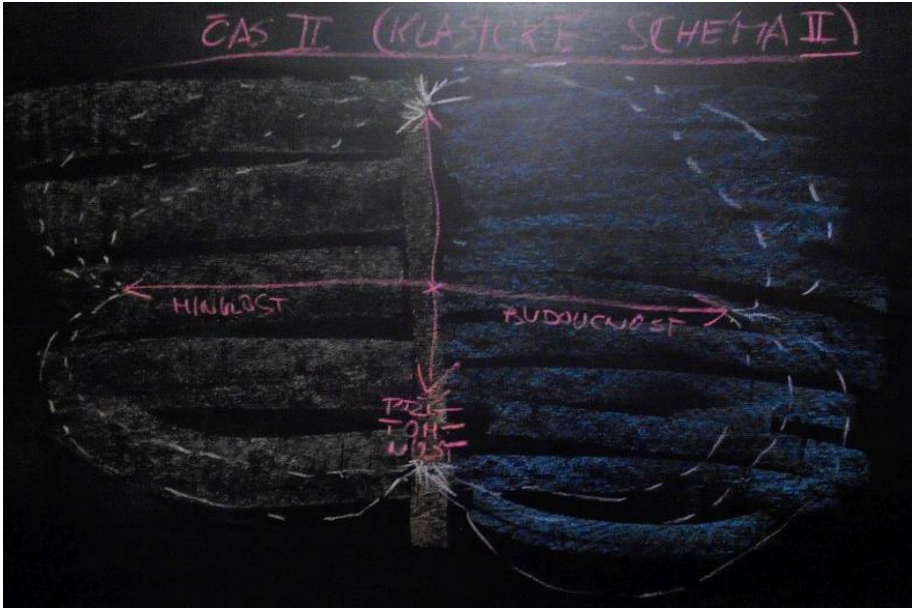 ČAS II (KLASICKÉ SCHÉMA II)
MINULOST
BUDOUCNOST
PŘÍ-
TOM-
NOST